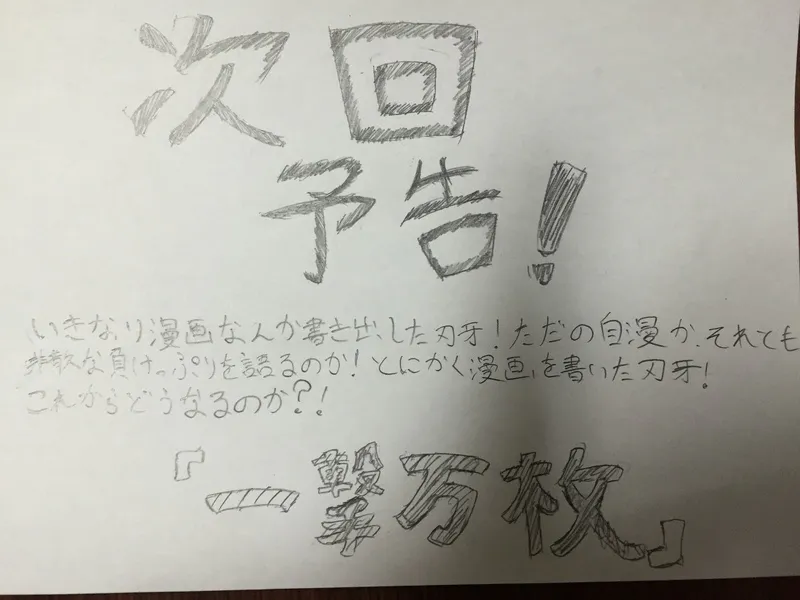 次回
予告!
いきなり漫画なんか書き出した刃牙!ただの自漫か、それとも
無敵な負けっぷりを語るのか!とにかく漫画を書いた刃牙!
これからどうなるのか?!
『一撃万枚』